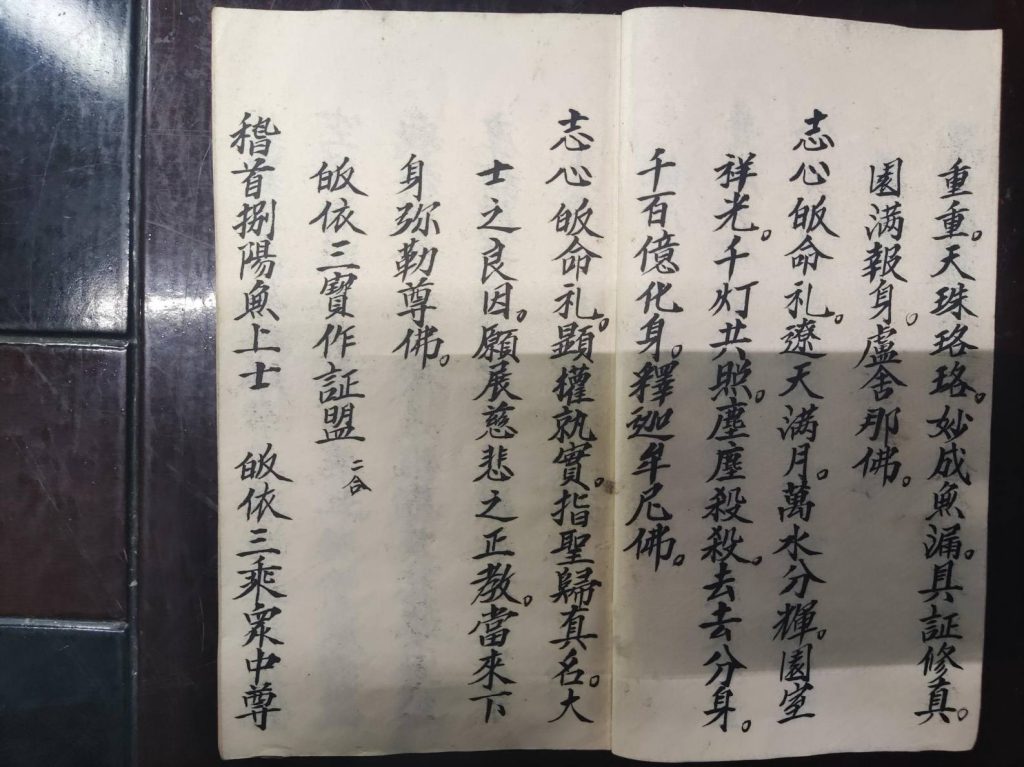 重重。天珠珞珞。妙成𤋮漏。具証修真。
園满報身。盧舍那佛。
志心皈命礼。遼天满月。萬水分輝。園室
祥光。千灯共照。塵塵殺殺。去去分身。
千百億化身。釋迦牟尼佛。
志心皈命礼。顕權執實。指聖歸真名。大
士之良因。願展慈悲之正教。當來下
身弥勒尊佛。
皈依三寶作証盟 二合
稽首捌陽𤋮上士 皈依三乘衆中尊